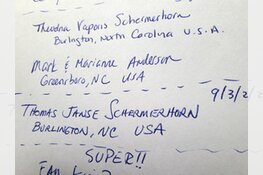 Theodora Vaporis Schermerhorn
Burlington, North Carolina U.S.A.
Mark & Marianne Anderson
Greensboro, NC USA
9/3/2
THOMAS JANSE SCHERMERHORN
BURLINGTON, NC USA
SUPER!!